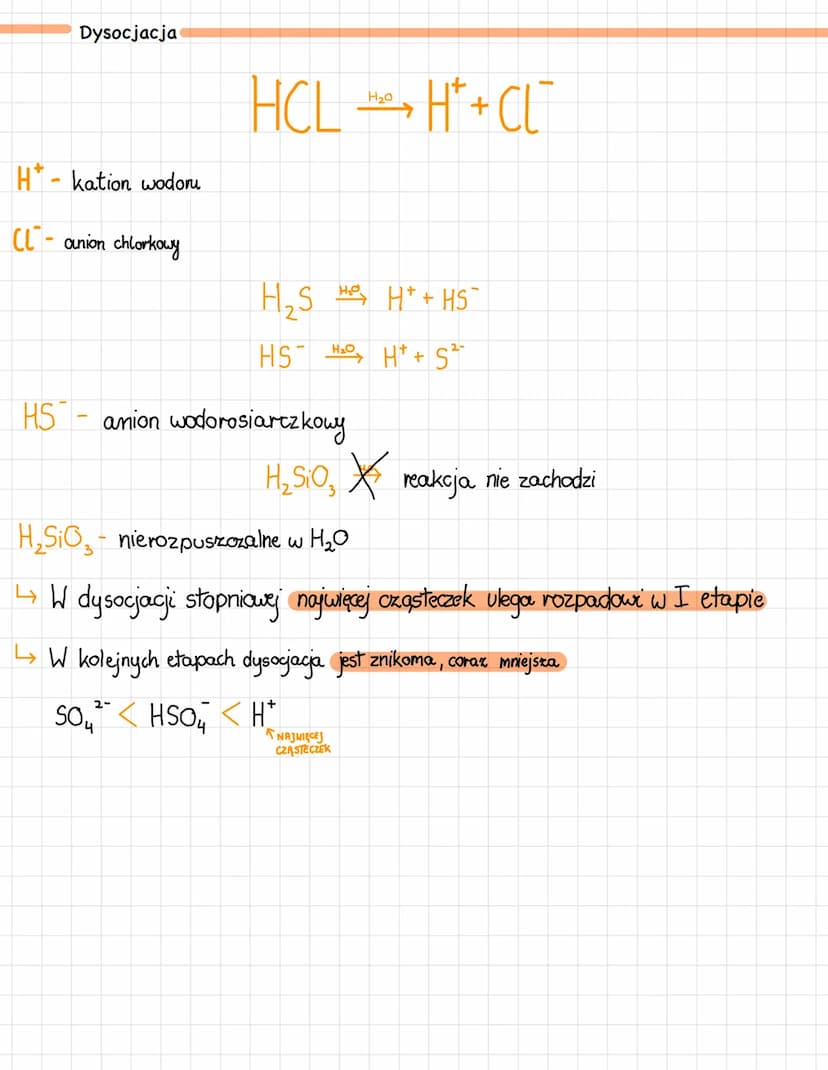 Dysocjacja
HCL →H₂O H⁺ + Cl⁻
H⁺ - kation wodoru
Cl⁻ - anion chlorkowy
H₂S →H₂O H⁺ + HS⁻
HS⁻ →H₂O H⁺ + S²⁻
HS⁻ - anion wodorosiarczkowy
H₂SiO₃ → reakcja nie zachodzi
H₂SiO₃ - nierozpuszczalne w H₂O
↳ W dysocjacji stopniowej najwięcej cząsteczek ulega rozpadowi w I etapie
↳ W kolejnych etapach dysocjacja jest znikoma, coraz mniejsza
SO₄²⁻ < HSO₄⁻ < H⁺
↖ NAJWIĘCEJ
CZĄSTECZEK